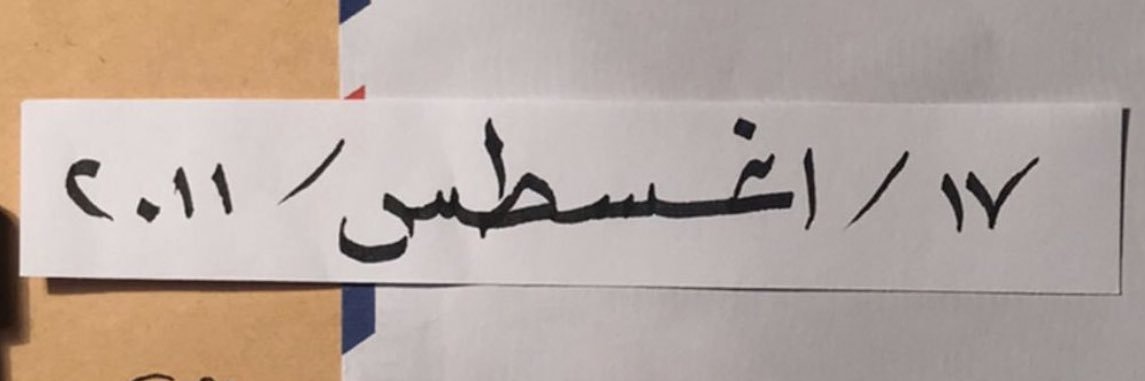 ١٧ / اغسطس / ٢٠١١